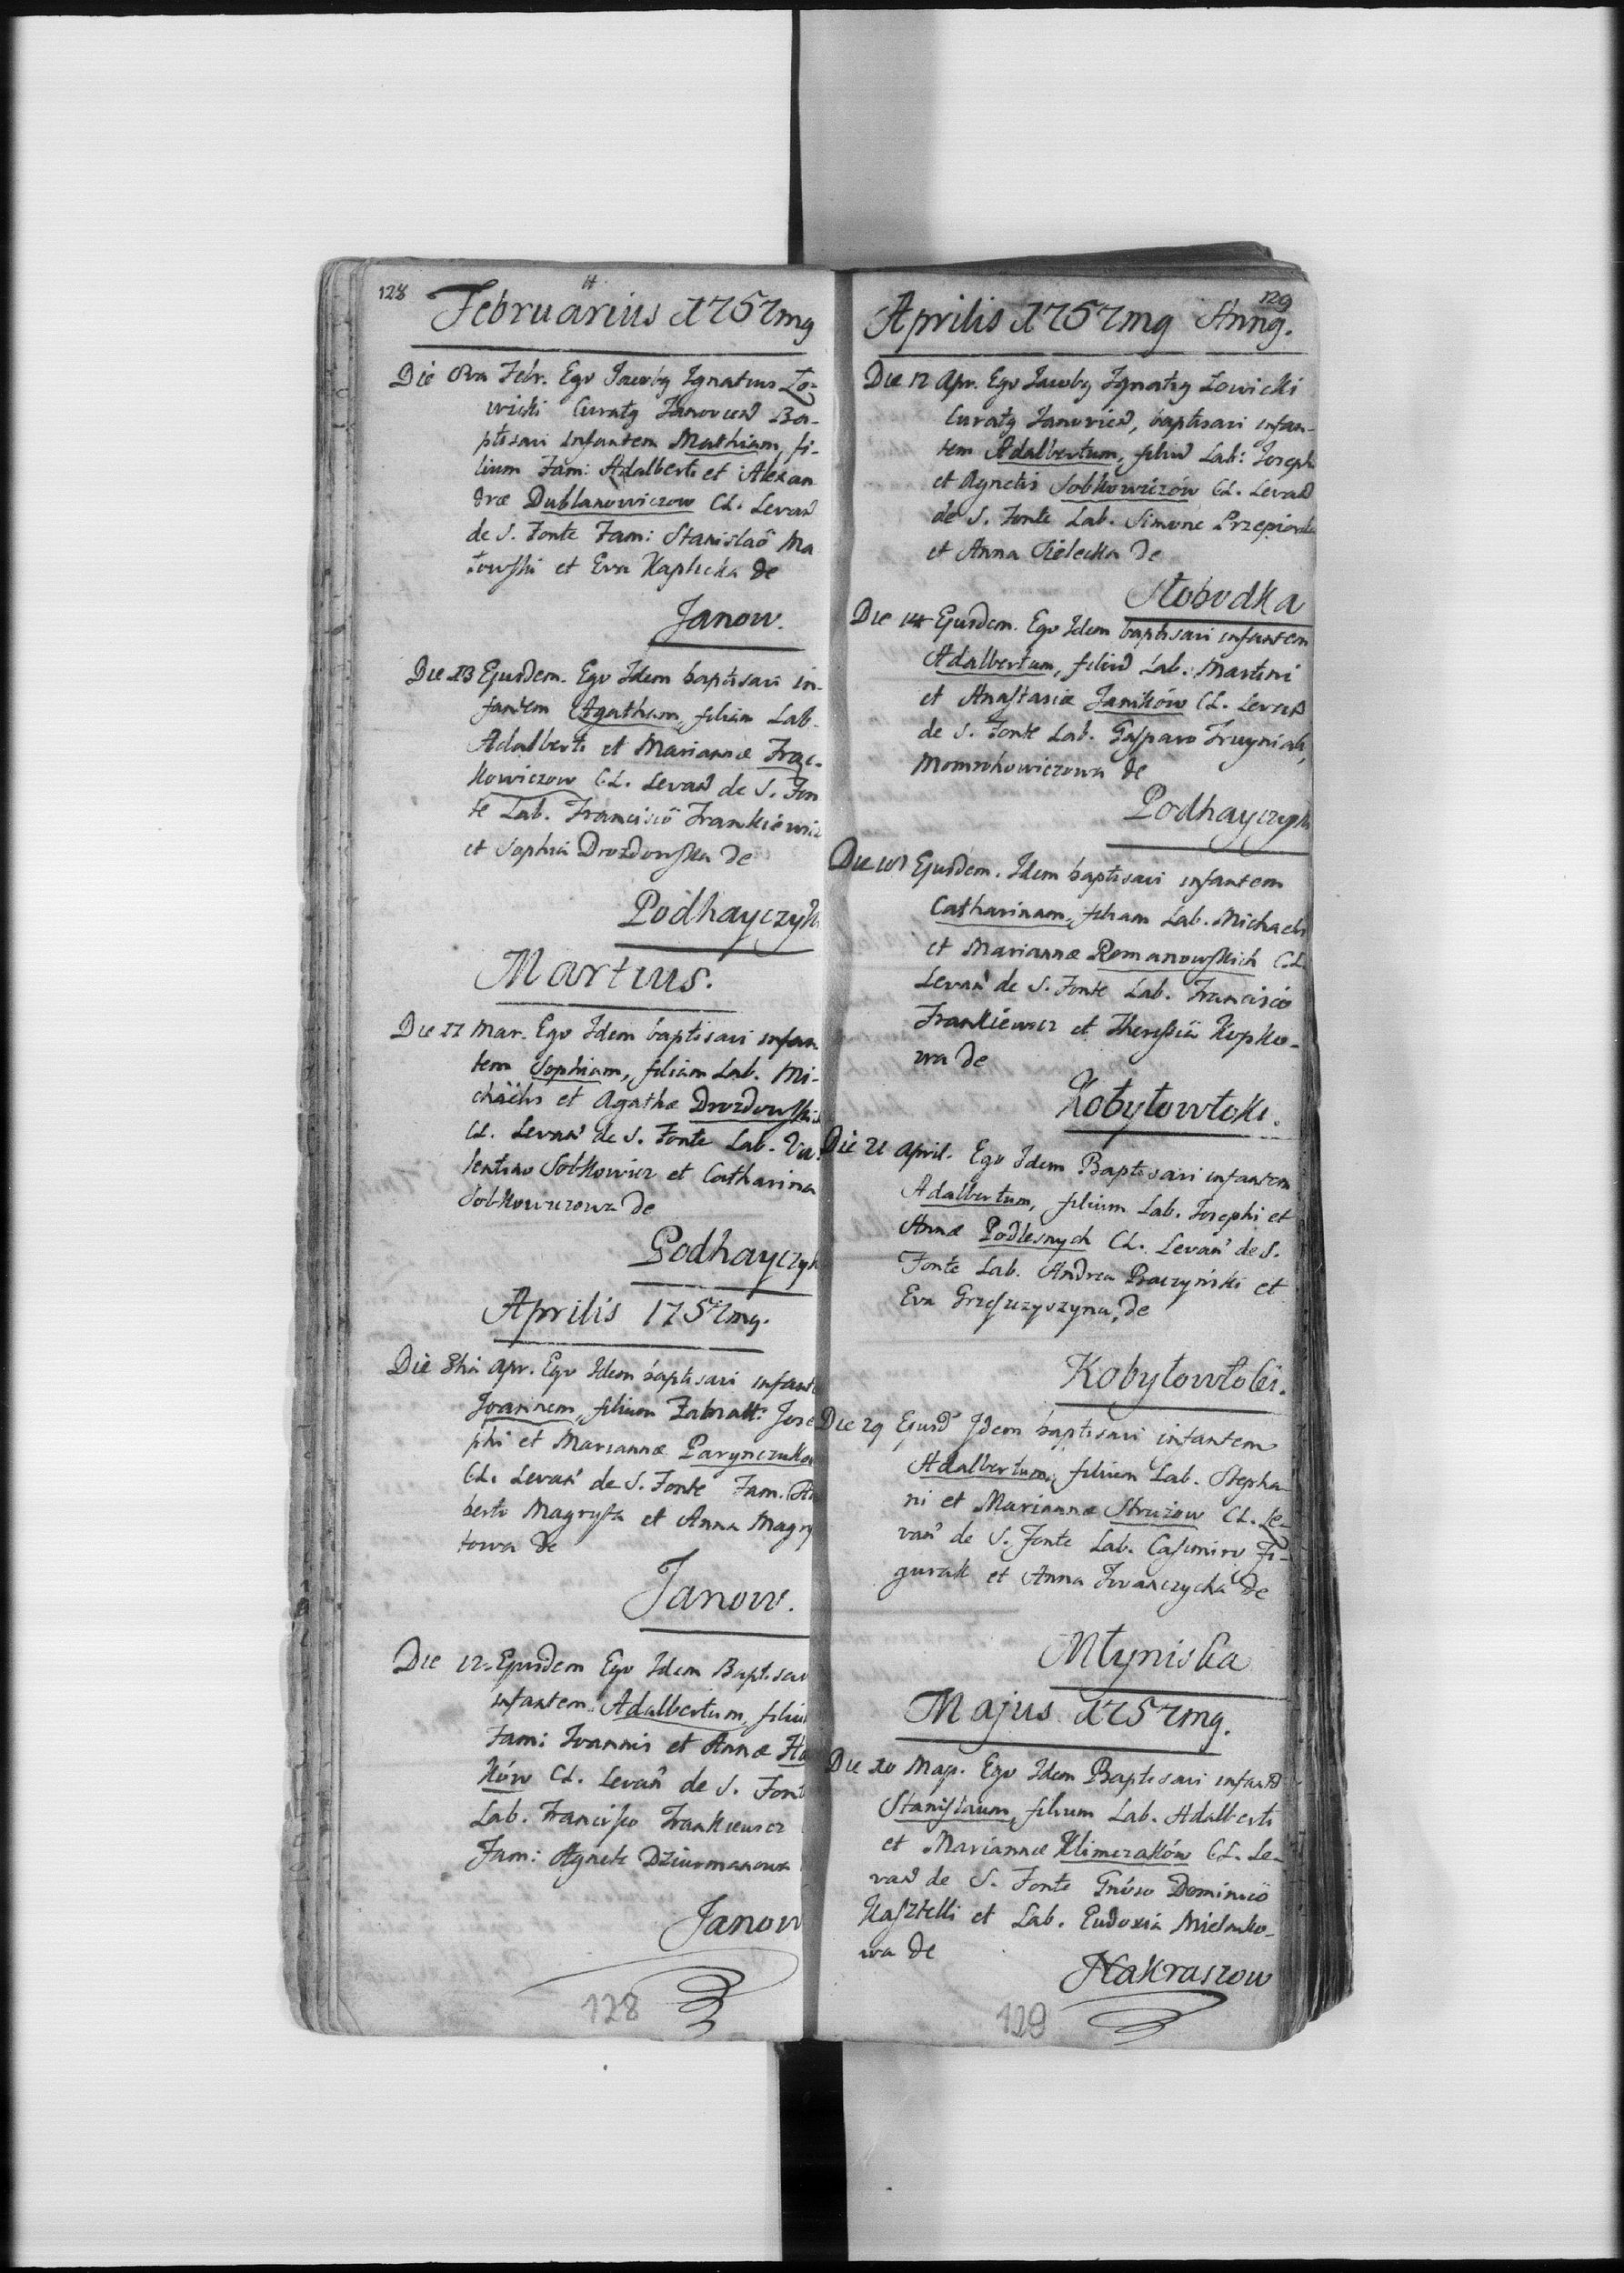 128
Februarius 1757mg
Die 8va Febr. Ego Jacobg Ignatius Ło-
wicki Curatg Janovien Ba-
ptisavi Infantem Mathiam, fi-
lium Fam: Adalberti et Alexan
dræ Dublanowiczow CL. Levan
de S. Fonte Fam: Stanislaö Ma
łowski et Eva Kaplicka de
Janow.
Die 13 Ejusdem. Ego Idem baptisavi in-
fantem Agatham, filiam Lab.
Adalberti et Mariannæ Frąc-
kowiczow CL. Levan de S. Fon
te Lab. Franciscö Frankiewicz
et Sophia Drozdowska de
Podhayczyk
Martius.
Die 11 Mar. Ego Idem baptisavi infan
tem Sophiam, filiam Lab. Mi-
chaëlis et Agathæ Drozdowskich
CL. Levan de S. Fonte Lab. Va-
lentino Sobkowicz et Catharina
Sobkowiczowa de
Podhayczyk
Aprilis 1757mg.
Die 8tia Apr. Ego Idem baptisavi infant
Joannem, filium Jose
phi et Mariannæ Parynczuko
CL. Levan de S. Fonte Fam. Ad
berto Magrysta et Anna Magry
towa de
Janow.
Die 12 Ejusdem Ego Idem Baptisavi
infantem Adalbertum, filiu
Fam: Joannis et Annæ
ków CL. Levan de S. Font
Lab. Francisco Frankiewicz
Fam: Agnete Dziurmanowa
Janow
128
129
Aprilis 1757mg Anng.
Die 12 Apr. Ego Jacobg Ignatig Łowicki
Curatg Janovien, baptisavi infan-
tem Adalbertum, filiu Lab: Joseph
et Agnetis Sobkowiczów CL. Levan
de S. Fonte Lab. Simone Przepiorka
et Anna Cielecka de
Słobodka
Die 14 Ejusdem. Ego Idem baptisavi infantem
Adalbertum, filiu Lab: Martini
et Anastasiæ Janików CL. Levan
de S. Fonte Lab. Gasparo
de
Podhayczyk
Die Ejusdem. Idem baptisavi infantem
Catharinam, filiam Lab. Michaelis
et Mariannæ Romanowskich CL
Levan de S. Fonte Lab. Franciscö
Frankiewicz et Theresia Kopko-
wa de
Kobyłowłoki.
Die 21 April. Ego Idem Baptisavi infantem
Adalbertum, filium Lab. Josephi et
Annæ Podlesnych CL. Levan de S.
Fonte Lab. Andrea Praczyński et
Eva Grzeszczyszyna, de
Kobyłowłoki.
Die 29 Ejusd Idem baptisavi infantem
Adalbertum, filium Lab. Stepha-
ni et Mariannæ Struzow CL. Le-
van de S. Fonte Lab. Casimiro Fi-
gurak et Anna Iwanczycha de
Młyniska
Majus 1757mg.
Die 10 Maj. Ego Idem Baptisavi infant
Stanislaum, filium Lab. Adalberti
et Mariannæ Klimczaków CL. Le-
van de S. Fonte Gnöso Dominicö
Kasztelli et Lab. Eudoxia Mielniko-
wa de
Hakraszow
129